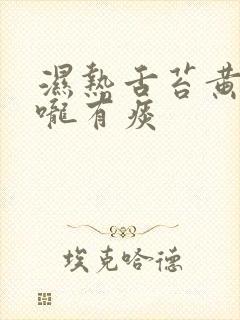 濕熱舌苔黃
嚨有痰
埃克哈德